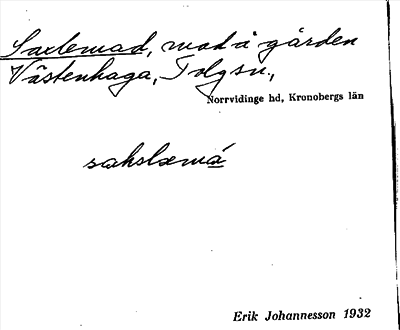 Saxlemad, mad å gården
Västenhaga, Tolgsn.,
Norrvidinge hd, Kronobergs län
sakslæmá
Erik Johannesson 1932